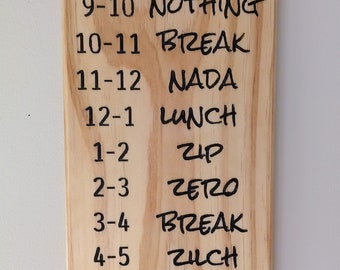 9-10 NOTHING
10-11 BREAK
11-12 NADA
12-1 LUNCH
1-2 ZIP
2-3 ZERO
3-4 BREAK
4-5 ZILCH